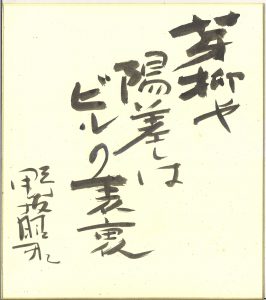 芽柳や
陽差しは
ビルの表裏